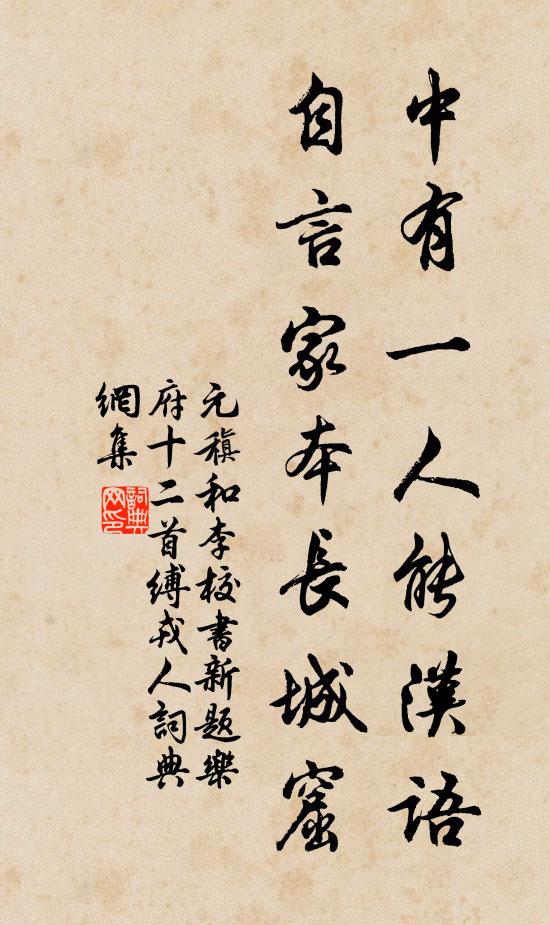 中有一人能漢語
自言家本長城窟
元稹和李校書新題樂
府十二首縛戎人詞典
網集
詞典網印